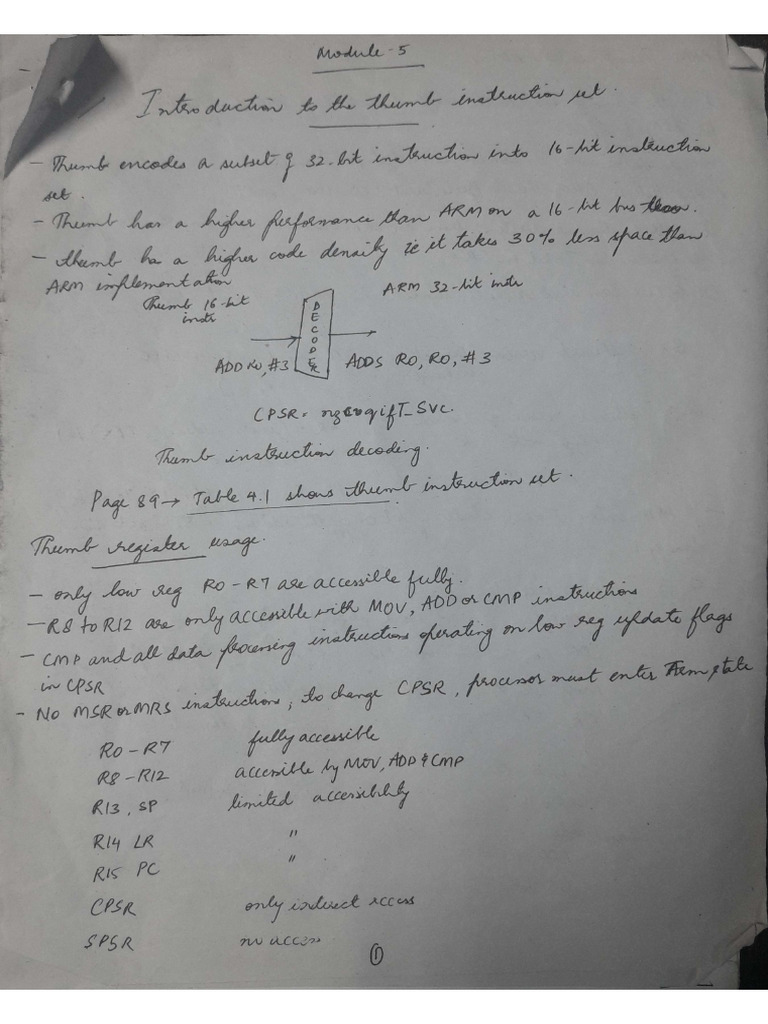 Module - 5
Introduction to the thumb instruction set.
- Thumb encodes a subset of 32-bit instruction into 16-bit instruction
set.
- Thumb has a higher performance than ARM on a 16-bit bus
- thumb ha a higher code density ie it takes 30% less space than
ARM implementation
Thumb 16-bit
instr
ARM 32-bit instr
DECODER
ADD R0, #3
ADDS R0, R0, #3
CPSR = nzcvqifT_SVC.
Thumb instruction decoding.
Page 89 → Table 4.1 shows thumb instruction set.
Thumb register usage.
- only low reg R0 - R7 are accessible fully.
- R8 to R12 are only accessible with MOV, ADD or CMP instructions
- CMP and all data processing instructions operating on low reg update flags
in CPSR
- No MSR or MRS instructions, to change CPSR, processor must enter Arm state
R0 - R7 fully accessible
R8 - R12 accessible by MOV, ADD & CMP
R13, SP limited accessibility
R14 LR "
R15 PC "
CPSR only indirect access
SPSR no access
1